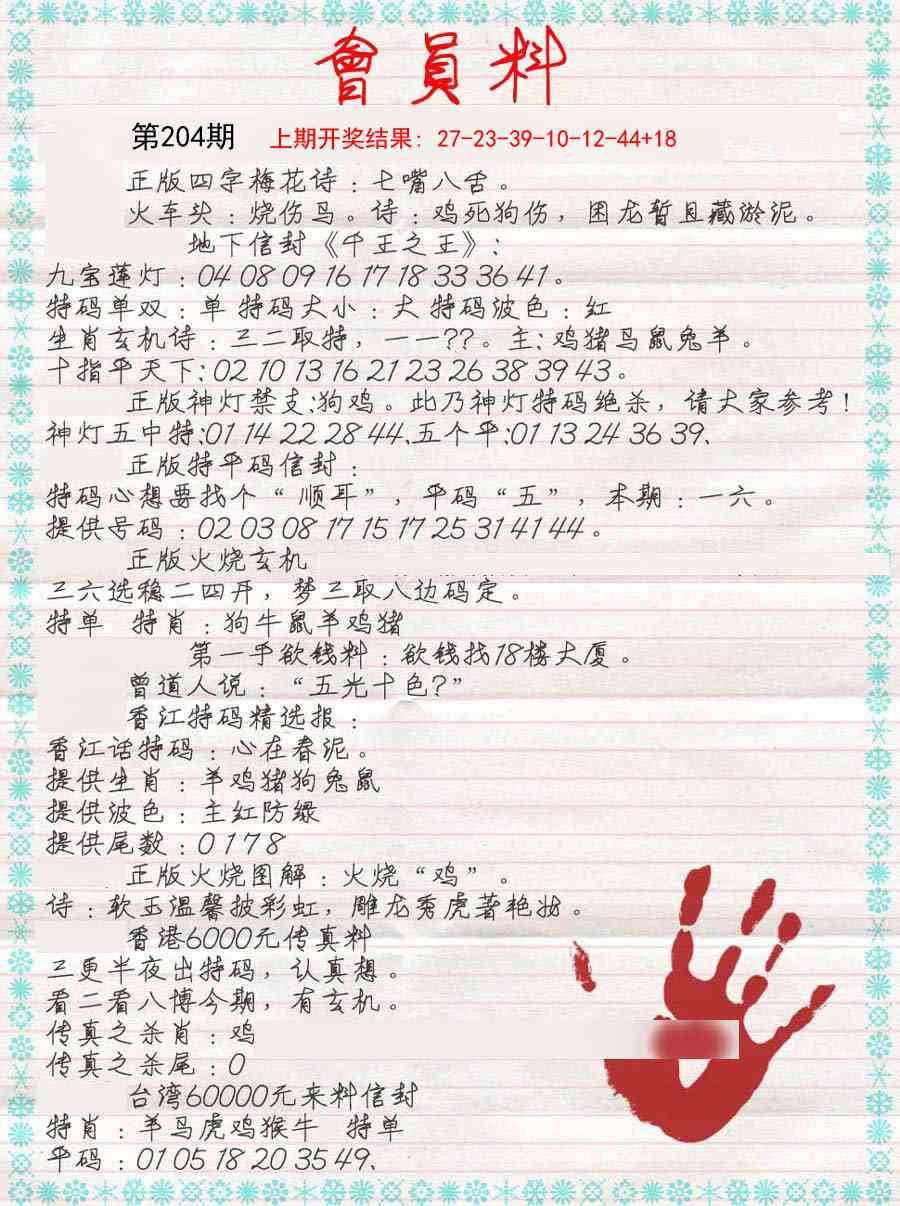 會員料
第204期 上期开奖结果：27-23-39-10-12-44+18
正版四字梅花诗：七嘴八舌。
火车头：烧伤鸟。诗：鸡死狗伤，困龙暂且藏淤泥。
地下信封《千王之王》：
九宝莲灯：04 08 09 16 17 18 33 36 41。
特码单双：单 特码大小：大 特码波色：红
生肖玄机诗：三二取特，一一??。主：鸡猪鸟鼠兔羊。
十指平天下：02 10 13 16 21 23 26 38 39 43。
正版神灯禁支：狗鸡。此乃神灯特码绝杀，请大家参考！
神灯五中特：01 14 22 28 44、五个平：01 13 24 36 39、
正版特平码信封：
特码心想要找个“顺耳”，平码“五”，本期：一六。
提供号码：02 03 08 17 15 17 25 31 41 44。
正版火烧玄机
三六选稳二四开，梦三取八边码定。
特单 特肖：狗牛鼠羊鸡猪
第一手欲钱料：欲钱找18楼大厦。
曾道人说：“五光十色？”
香江特码精选报：
香江话特码：心在春泥。
提供生肖：羊鸡猪狗兔鼠
提供波色：主红防绿
提供尾数：0 1 7 8
正版火烧图解：火烧“鸡”。
诗：软玉温馨披彩虹，雕龙秀虎著艳妆。
香港6000元传真料
三更半夜出特码，认真想。
看二看八博今期，有玄机。
传真之杀肖：鸡
传真之杀尾：0
台湾60000元来料信封
特肖：羊鸟虎鸡猴牛 特单
平码：01 05 18 20 35 49、